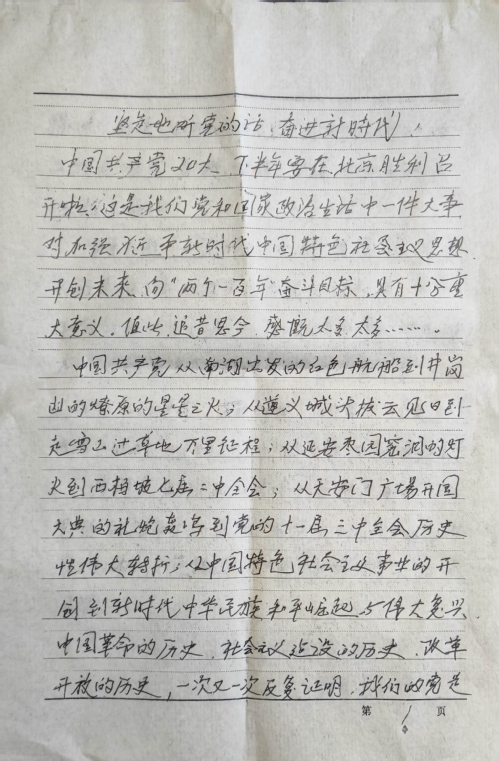 坚定地听党的话，奋进新时代，
中国共产党20大，下半年要在北京胜利召
开啦，这是我们党和国家政治生活中一件大事
对加强习近平新时代中国特色社会主义思想
开创未来，向“两个一百年”奋斗目标，具有十分重
大意义，值此，追昔思今，感慨太多太多……。
中国共产党从南湖出发的红色航船到井岗
山的燎原的星星之火；从遵义城头拔云见日到
走雪山过草地万里征程；从延安枣园窑洞的灯
火到西柏坡七届二中全会；从天安门广场开国
大典的礼炮轰鸣到党的十一届三中全会历史
性伟大转折；从中国特色社会主义事业的开
创到新时代中华民族和平崛起与伟大复兴
中国革命的历史、社会主义建设的历史、改革
开放的历史，一次又一次反复证明，我们的党是
第 1 页